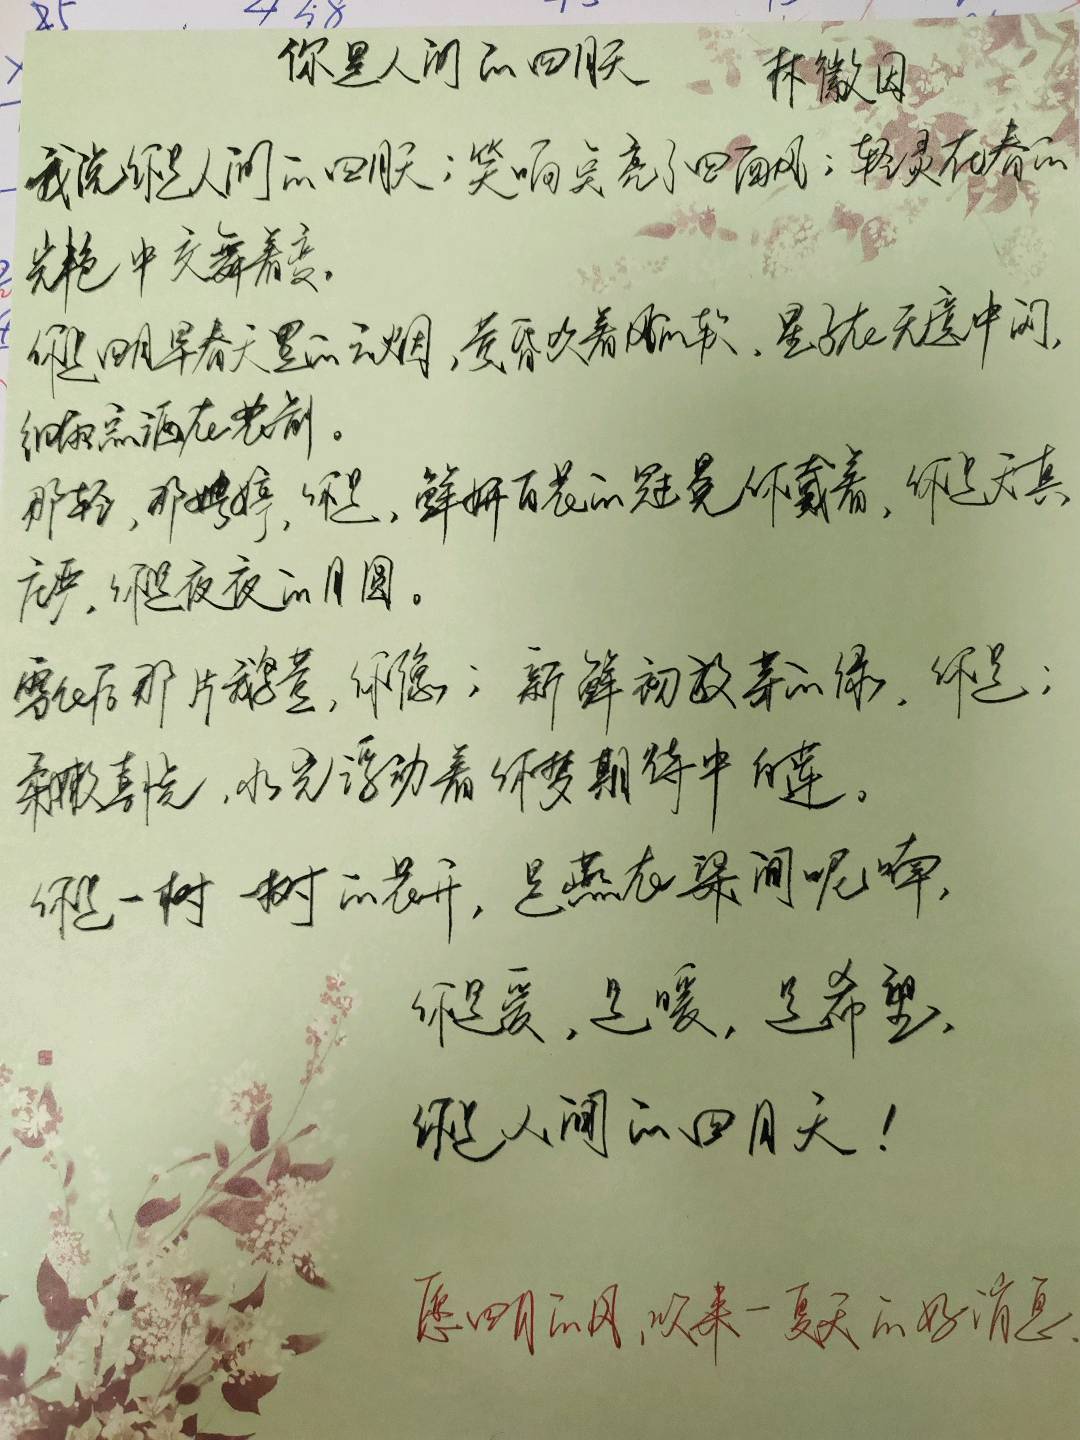 85 4 58
你是人间的四月天 林徽因
我说你是人间的四月天；笑响点亮了四面风；轻灵在春的
光艳中交舞着变。
你是四月早春天里的云烟，黄昏吹着风的软，星子在无意中闪，
细雨点洒在花前。
那轻，那娉婷，你是，鲜妍百花的冠冕你戴着，你是天真
庄严，你是夜夜的月圆。
雪化后那片鹅黄，你像；新鲜初放芽的绿，你是；
柔嫩喜悦，水光浮动着你梦期待中白莲。
你是一树一树的花开，是燕在梁间呢喃，
你是爱，是暖，是希望，
你是人间的四月天！
愿四月的风，吹来一夏天的好消息.